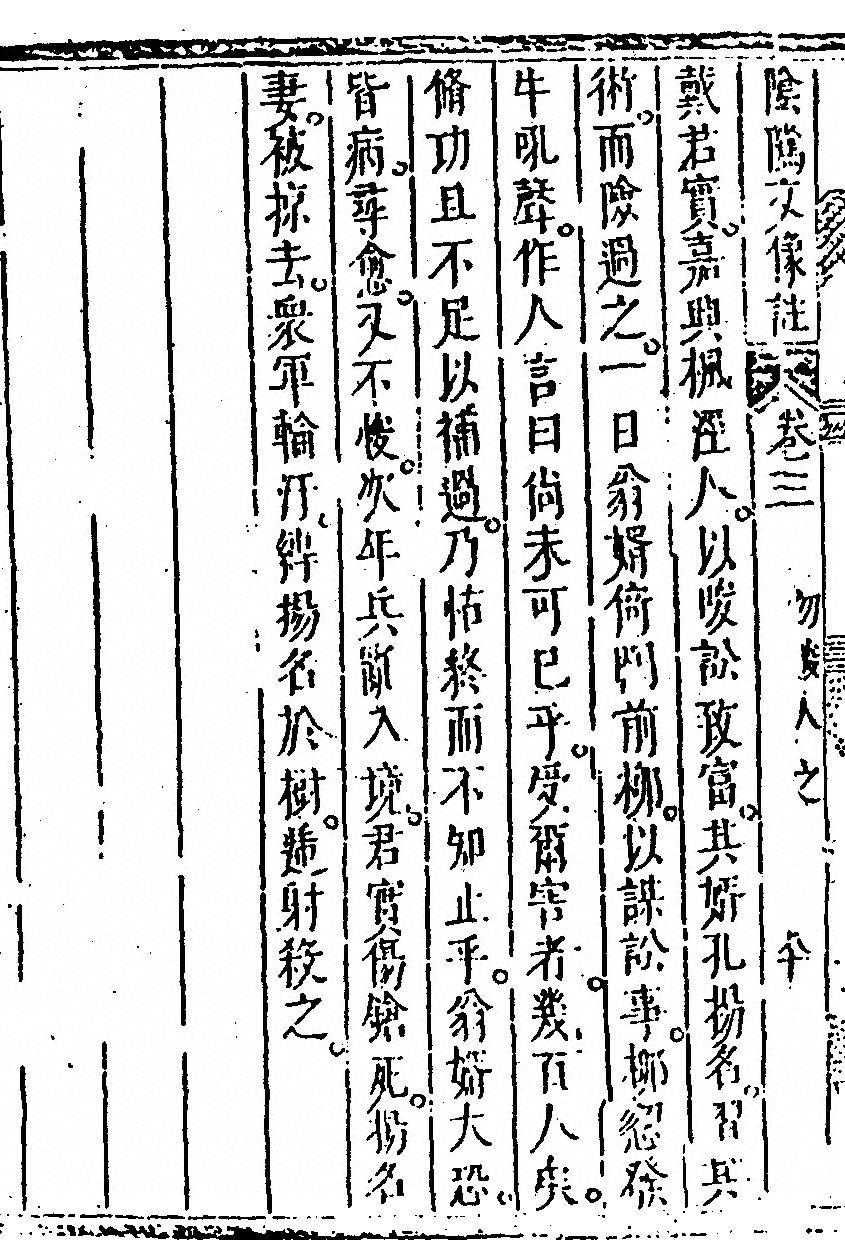 陰隲文像註 卷三 勿唆人之 卒
戴君實嘉興楓涇人以唆訟致富其婿孔揚名習其
術而險過之一日翁婿倚門前柳以謀訟事柳忽發
牛吼聲作人言曰尚未可已乎受爾害者幾百人矣
脩功且不足以補過乃怙終而不知止乎翁婿大恐
皆病尋愈又不悛次年兵斷入境君實傷鎗死揚名
妻被掠去衆軍輪汙綁揚名於樹遞射殺之